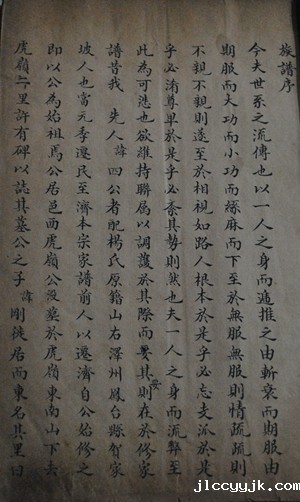 族譜序
今夫世系之流傳也以一人之身而遞推之由斬衰而期服由
期服而大功而小功而緦麻而下至於無服無服則情疏疏則
不親不親則遂至於相視如路人根本於是乎必忘支派於是
乎必淆尊卑於是乎必紊其勢則然也夫一人之身而流弊至
此為可慼也欲維持聯属以調護於其際而要其則在於修家
譜昔我 先人諱四公者配楊氏原籍山右澤州鳳台縣賀家
坡人也當元季遷民至濟本宗家譜前人以遷濟自公始修之
即以公為始祖焉公居邑西虎嶺公没塟於虎嶺東南山下去
虎嶺六里許有碑以誌其墓公之子諱剛徙居而東名其里曰
www.jlccyyjk.com